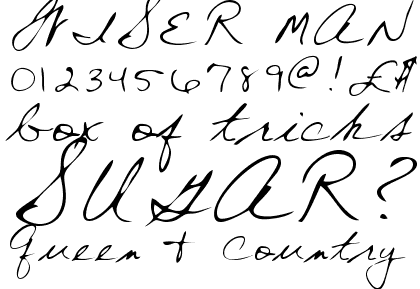 WISER MAN
0123456789@!£$
box of tricks
SUGAR?
Queen + Country